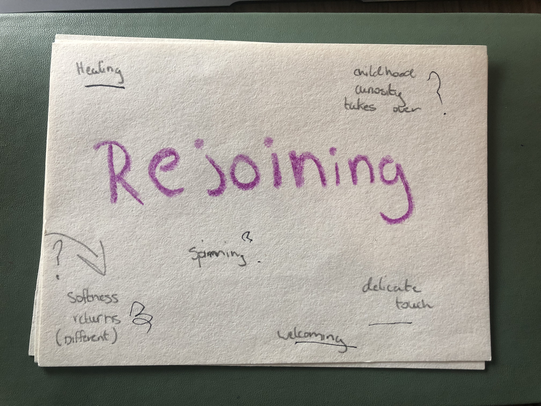 Healing
childhood
curiosity
takes over ?
Rejoining
spinning ?
?
Softness
returns
(Different)
delicate
touch
welcoming